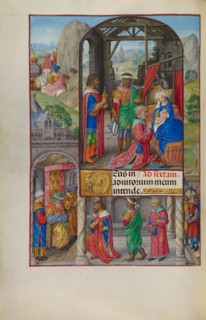 Deus in Ad sextam.
adiutorium meum
intende.